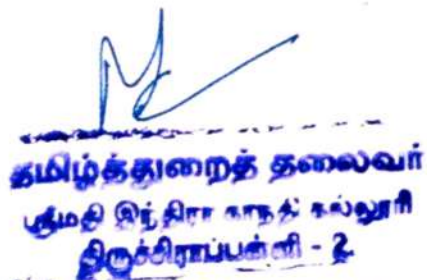 தமிழ்த்துறைத் தலைவர்
ஸ்ரீமதி இந்திரா காந்தி கல்லூரி
திருச்சிராப்பள்ளி - 2